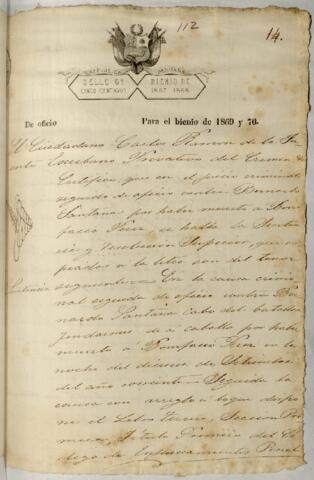 112
14.
SELLO 6º BIENIO DE
CINCO CENTAVOS 1867 1868
De oficio Para el bienio de 1869 y 70.
El Ciudadano Carlos Ramon de la
Escribano
Certifico, que en el juicio criminal
seguido de oficio contra Bernardo
Santana por haber muerto á Boni-
facio se halla la Senten-
cia y resolucion Superior, que co-
piadas á la letra son del tenor
Sentencia siguiente = En la causa crimi-
nal seguida de oficio contra Ber-
nardo Santana Cabo del batallon
jendarmes de á caballo por haber
muerto á Bonifacio en la
noche del de Setiembre
del año corriente = Seguida la
causa con arreglo á lo que dispo-
ne el Libro tercero, Seccion Pri-
mera, Titulo Primero del Co-
digo de Enjuiciamientos Penal